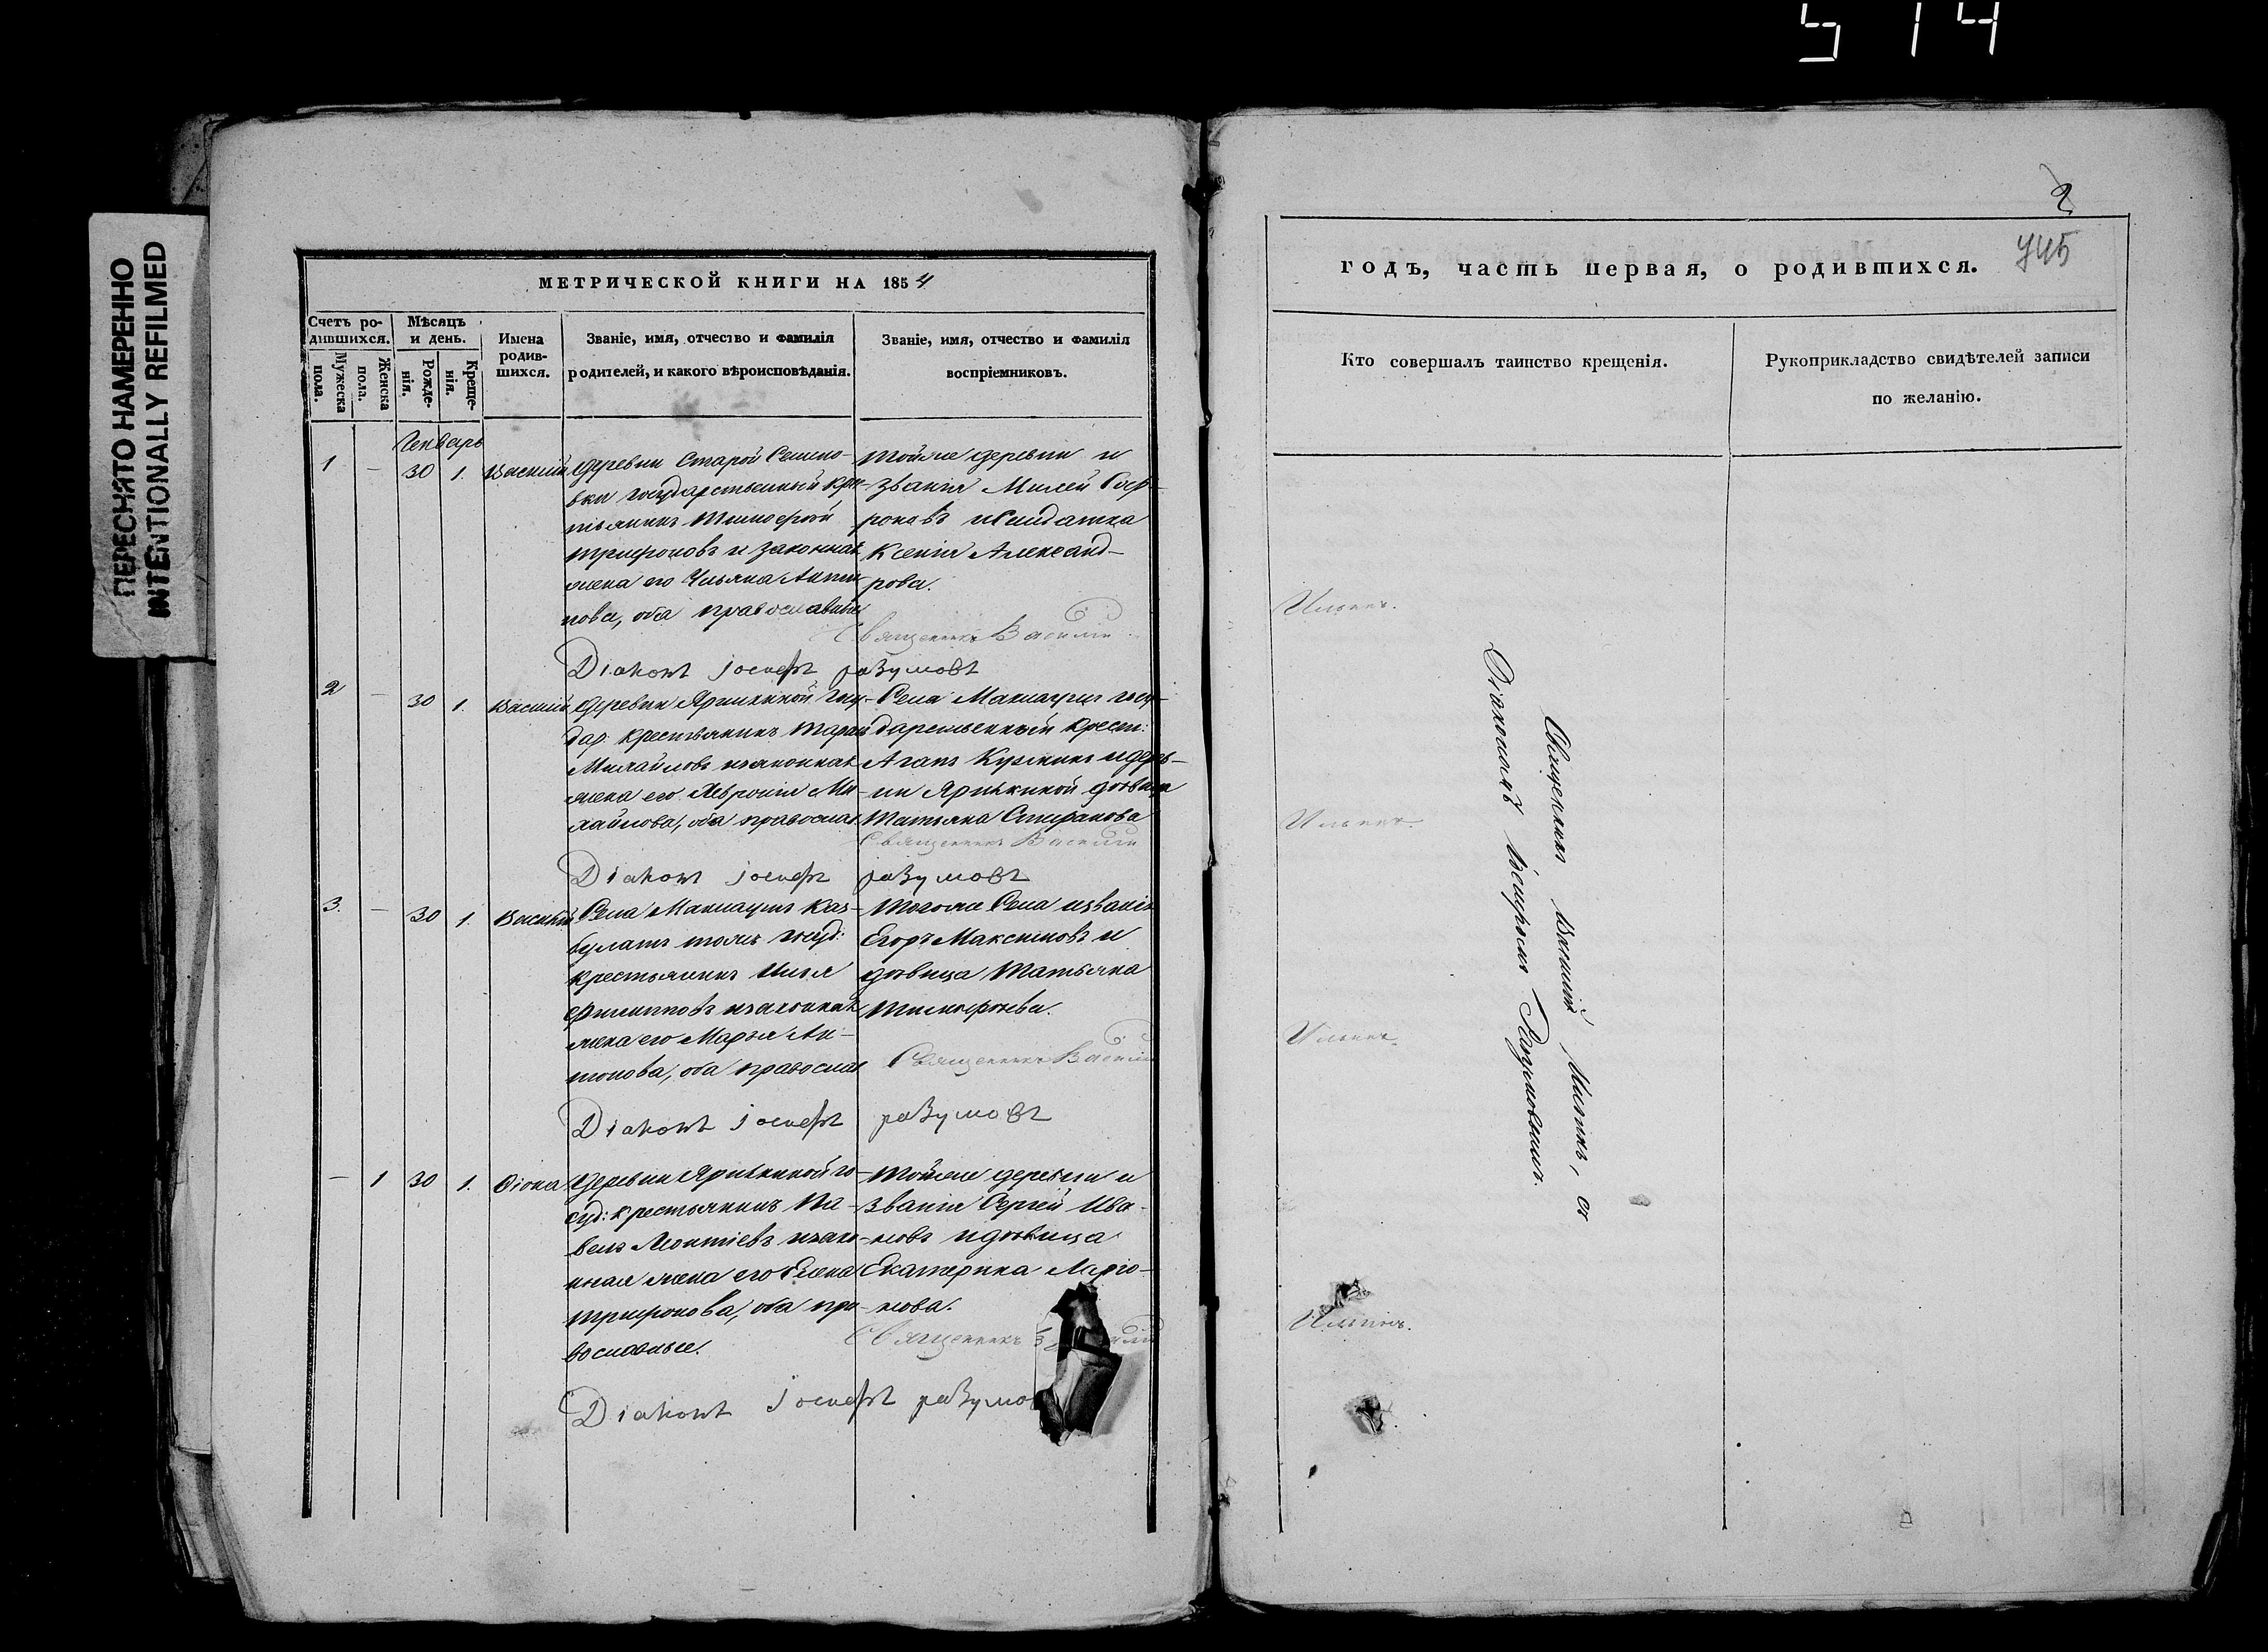 514
ПЕРЕСНЯТО НАМЕРЕННО
INTENTIONALLY REFILMED
МЕТРИЧЕСКОЙ КНИГИ НА 1854
Счетъ ро-
дившихся.
Мужеска
пола.
Женска
пола.
Мѣсяцъ
и день.
Рожде-
нія.
Креще-
нія.
Имена
родив-
шихся.
Званіе, имя, отчество и фамилія
родителей, и какого вѣроисповѣданія.
Званіе, имя, отчество и фамилія
воспріемниковъ.
Генварь
1 — 30 1. Василій
деревни Старой Семено-
вки государственный кре-
стьянинъ Тимофей
Трифоновъ и законная
жена его Ульяна Анти-
пова, оба православные
тойже деревни и
званія
Ксенія Александ-
рова.
Священникъ Василій
Діаконъ Іосифъ Разумовъ
2 — 30 1. Василій
деревни госу-
дар: крестьянинъ
Михайловъ изаконная
жена его Ми-
хайлова, оба православ
Села госу-
дарственный крест:
Агапъ Кузминъ идерев-
ни дѣвица
Татьяна Стефанова
Священникъ Василій
Діаконъ Іосифъ Разумовъ
3. — 30 1. Василій
Села
тожъ госуд:
крестьянинъ Илья
Филиповъ изаконная
жена его Марья Ан-
тонова, оба православ
Тогоже Села извания
Егоръ Максимовъ и
дѣвица Татьяна
Тимофеева.
Священникъ Василій
Діаконъ Іосифъ Разумовъ
— 1 30 1. Ѳіона
деревни го-
суд: крестьянинъ Па-
велъ Леонтіевъ изако-
нная жена его Елена
Трифонова, оба пра-
вославные.
Тойже деревни и
званія Сергей Ива-
новъ идѣвица
Екатерина Ларіо-
нова.
Священникъ
Діаконъ Іосифъ
2
745
годъ, часть первая, о родившихся.
Кто совершалъ таинство крещенія.
Рукоприкладство свидѣтелей записи
по желанію.
Ильинъ.
Ильинъ.
Ильинъ.
Ильинъ.
Священникъ Василій Ильинъ, съ
Діакономъ Іосифомъ Разумовымъ.